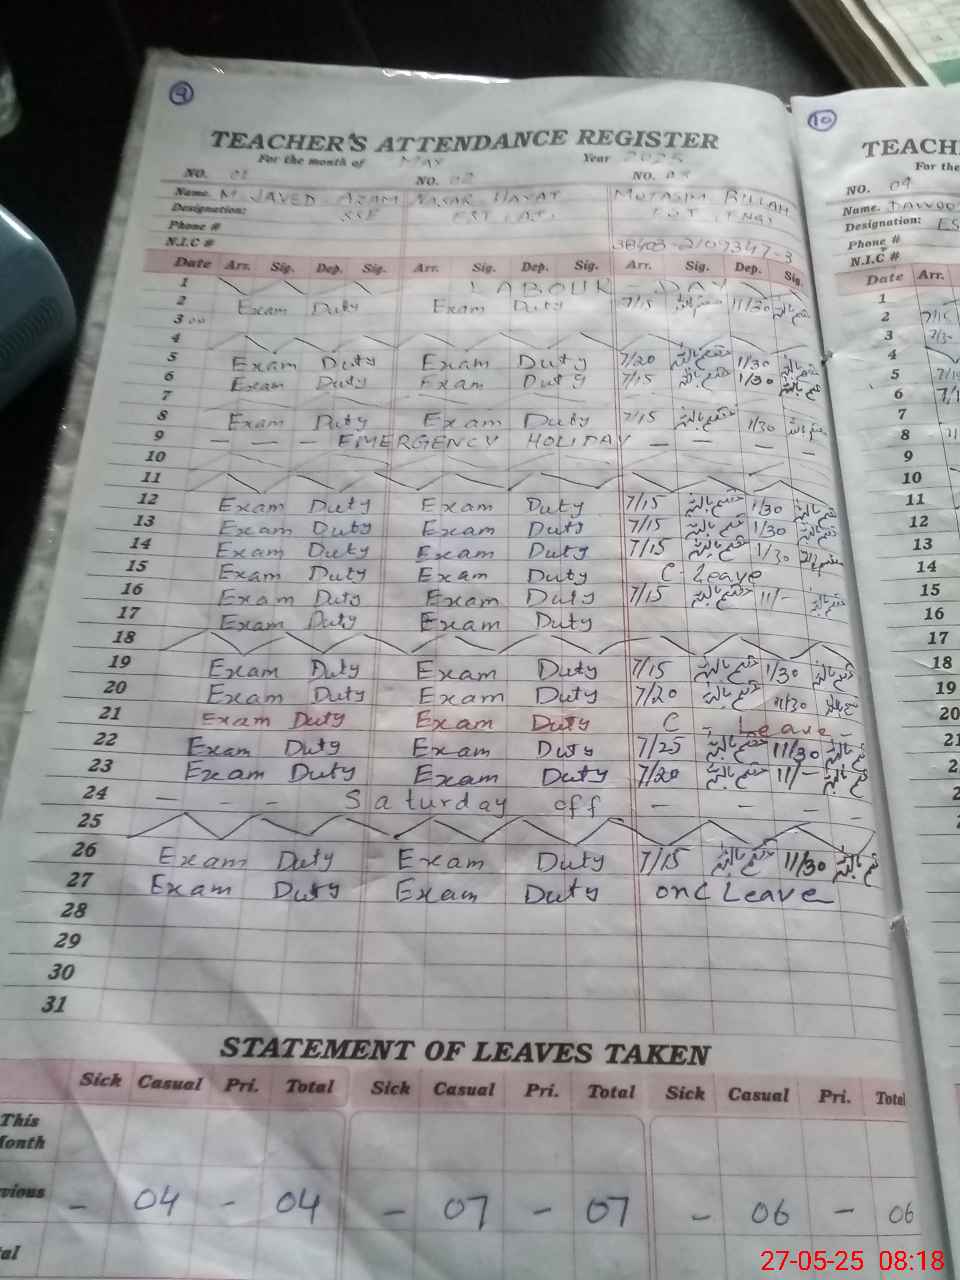 9
TEACHER'S ATTENDANCE REGISTER
For the month of MAY Year 2025
NO. 01 NO. 02 NO. 03
Name. M. JAVED AZAM NASAR HAYAT MUTASIM BILLAH
Designation: SSE EST (AT)
Phone #
N.I.C # 38403-2109347-3
Date Arr. Sig. Dep. Sig. Arr. Sig. Dep. Sig. Arr. Sig. Dep. Sig.
1 LABOUR - DAY
2 Exam Duty Exam Duty 7/15 11/30
3
4
5 Exam Duty Exam Duty 7/20 1/30
6 Exam Duty Exam Duty 7/15 1/30
7
8 Exam Duty Exam Duty 7/15 1/30
9 — — — EMERGENCY HOLIDAY — — — —
10
11
12 Exam Duty Exam Duty 7/15 1/30
13 Exam Duty Exam Duty 7/15 1/30
14 Exam Duty Exam Duty 7/15 1/30
15 Exam Duty Exam Duty C. Leave
16 Exam Duty Exam Duty 7/15 11/-
17 Exam Duty Exam Duty
18
19 Exam Duty Exam Duty 7/15 1/30
20 Exam Duty Exam Duty 7/20 11/30
21 Exam Duty Exam Duty C - Leave -
22 Exam Duty Exam Duty 7/25 11/30
23 Exam Duty Exam Duty 7/20 11/-
24 — - - Saturday off — — — -
25
26 Exam Duty Exam Duty 7/15 11/30
27 Exam Duty Exam Duty on C Leave
28
29
30
31
STATEMENT OF LEAVES TAKEN
Sick Casual Pri. Total Sick Casual Pri. Total Sick Casual Pri. Total
This
Month
vious - 04 - 04 - 07 - 07 - 06 - 06
tal
10
TEACH
For the
NO. 04
Name. DAWOO
Designation: ES
Phone #
N.I.C #
Date Arr.
1
2 7/15
3 7/30
4
5
6
7
8
9
10
11
12
13
14
15
16
17
18
19
20
21
27-05-25 08:18